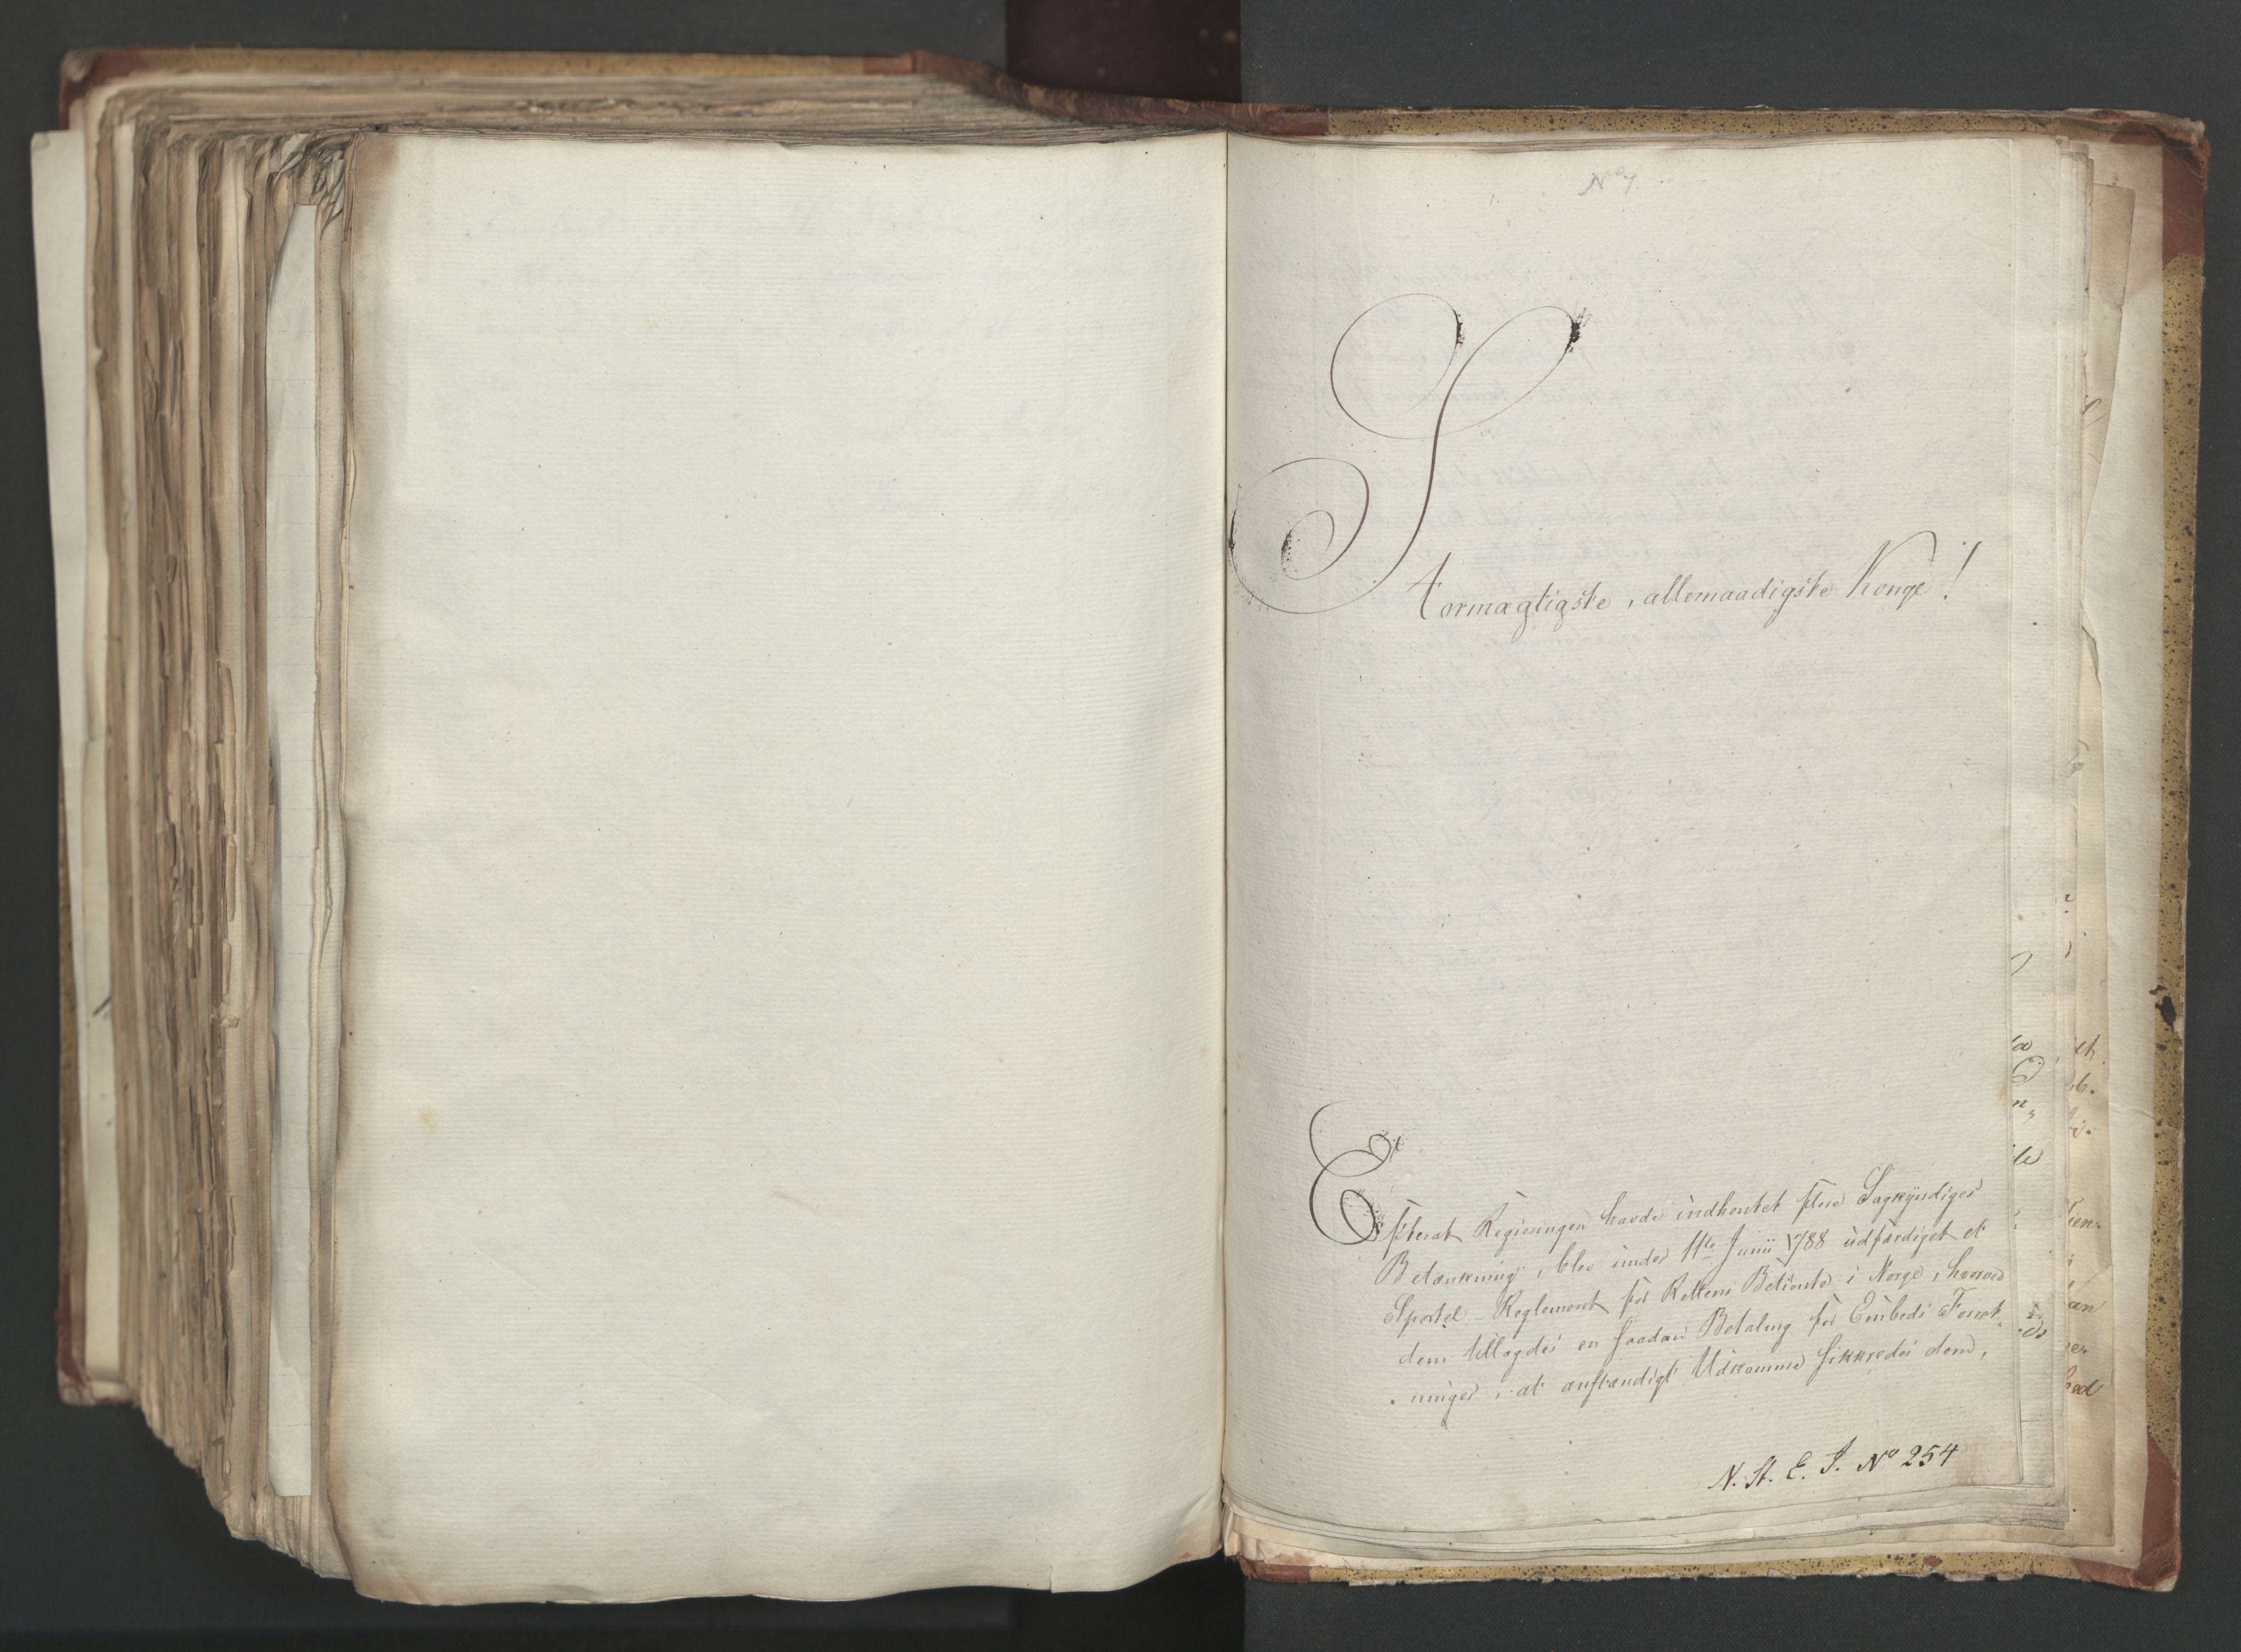 No 7.
Stormægtigste, allernaadigste Konge!
Efterat Regieringen havde indhentet flere Sagkyndiges
Betænkning, blev under 11te Junii 1788 udfærdiget et
Sportel-Reglement for Rettens Betiente i Norge, hvorved
dem tillagdes en saadan Betaling for Embeds Forret-
ninger, at anstændigt Udkomme sikkredes dem,
N. St. E. J. No 254